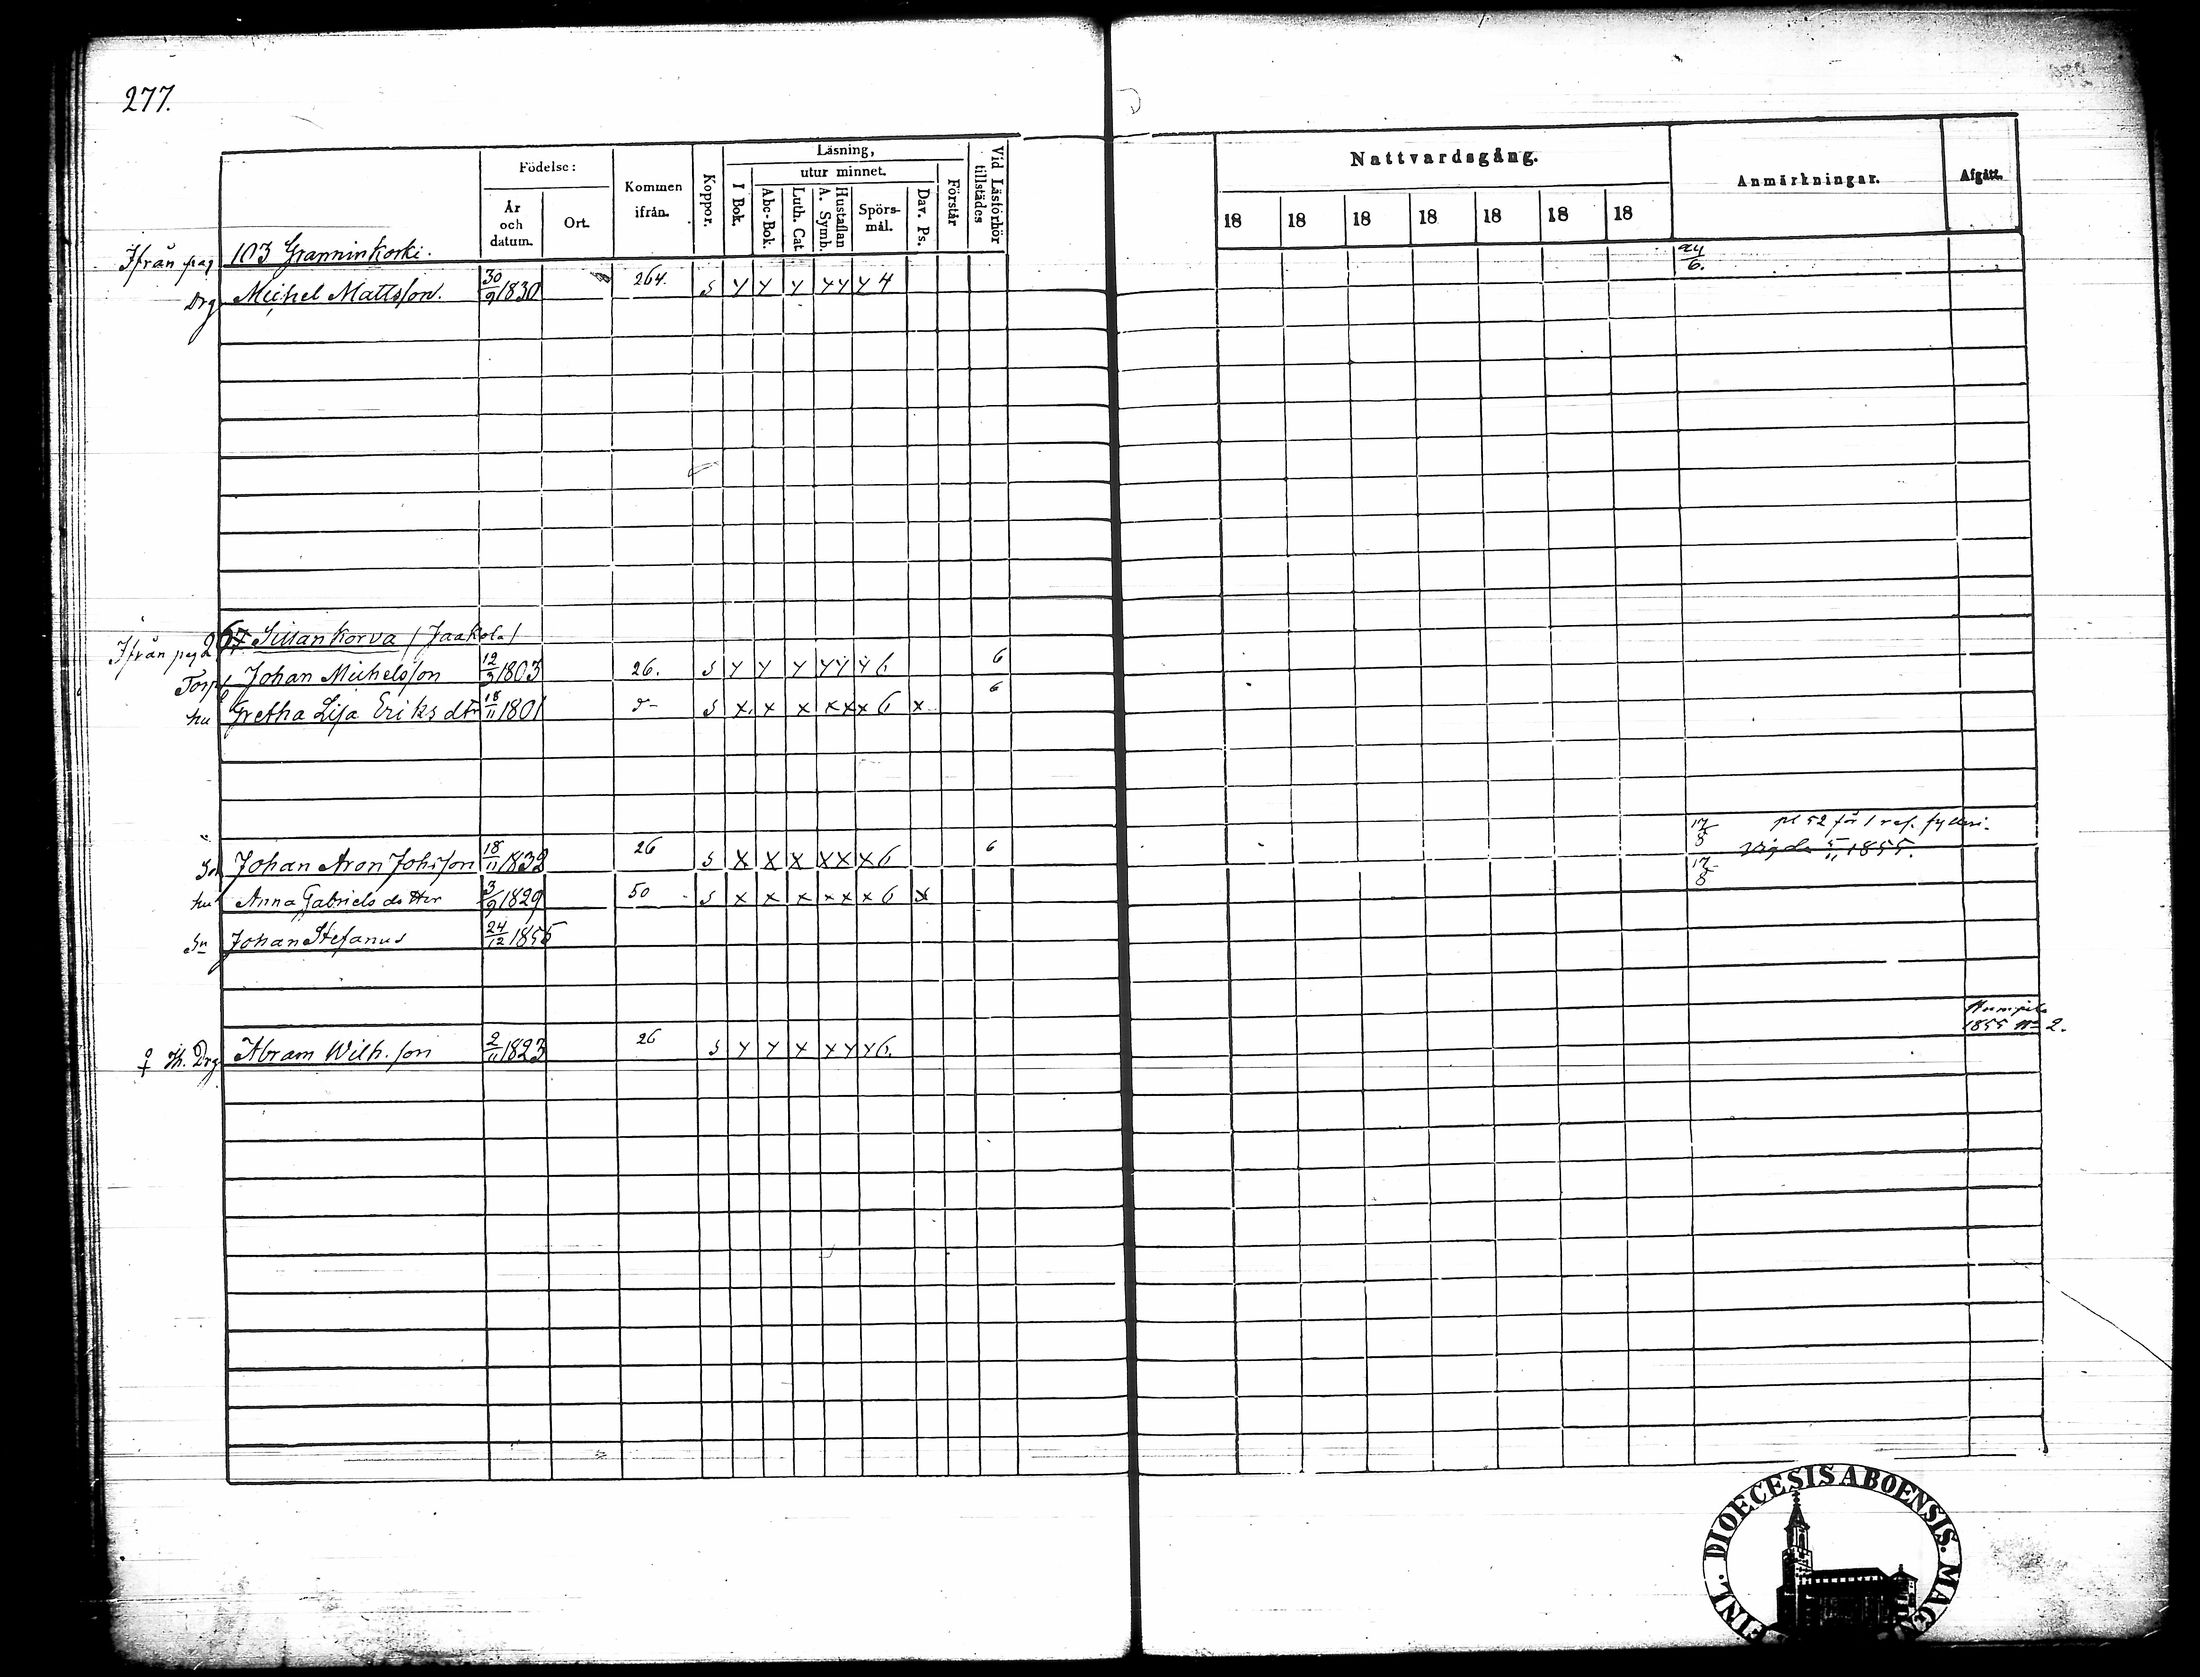 277.
Födelse:
År och datum.
Ort.
Kommen ifrån.
Koppor.
Läsning,
I Bok.
utur minnet.
Abc-Bok.
Luth. Cat.
Hustaflan A. Symb.
Spörs-mål.
Dav. Ps.
Förstår
Vid Läsförhör tillstädes
Nattvardsgång.
18 18 18 18 18 18 18
Anmärkningar.
Afgått.
Ifrån pag 103 Granninkoski.
Drg Michel Mattsson. 30/9 1830 264. s y y y y y y 4
Ifrån pag 267 /Jaakola/
Torp Johan Michelsson 12/9 1803 26. s y y y y y y 6 6
hu Gretha Lisa Eriksdtr 18/11 1801 d- s x x x x x x 6 x 6
Sn Johan Aron Johsson 18/11 1832 26 s x x x x x x 6 6 17/8 pl 52 för 1 res. fylleri.
vigde 5/11 1855.
hu Anna Gabriels dotter 3/9 1829 50 s x x x x x x 6 x 17/8
Sn Johan Stefanus 24/12 1855
Drg Abram Wilh.son 2/11 1823 26 s y y x x y y 6.
1855 No 2.
DIOECESIS ABOENSIS.